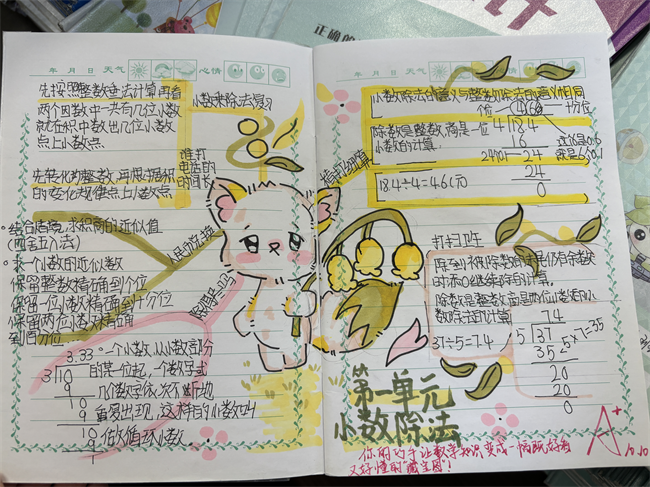 正确的
年 月 日 天气 心情
先按照整数乘法计算,再看
两个因数中一共有几位小数
就在积中数出几位小数
点上小数点
先转化为整数,再根据积
的变化规律点上小数点
小数乘除法复习
谁打
电话的
时间长
结合实际,求积商的近似值
(四舍五入法)
求一个小数的近似数
保留整数精确到个位
保留一位小数精确到十分位
保留两位小数精确
到百分位
人民币兑换
3.33
3 10
9
10
9
10
9
1
一个小数,从小数部分
的某一位起,一个数字或
几个数字依次不断地
重复出现,这样的小数叫
做循环小数...
年 月 日 天气 心情
小数除法的意义与整数除法的意义相同
除数是整数,商是一位
小数的计算
18.4÷4=4.6(元)
个位 4.6 十分位
4 18.4
16
24
24
0
打扫卫生
除到被除数的末尾仍有余数
时,添0继续除的计算。
除数是整数,商是两位小数的小
数除法的计算
37÷5=7.4
7.4
5 37
35
5×7=35
20
20
0
第一单元
小数除法
A+
10.10
你的巧手让数学知识变成一幅既好看
又好懂的"藏宝图"!